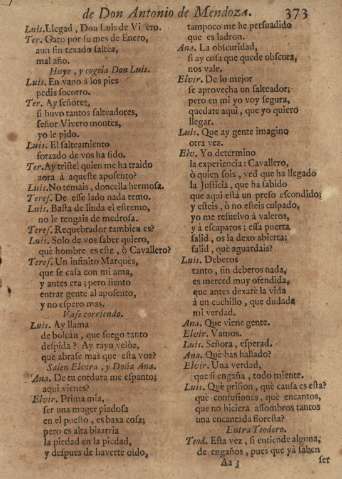 de Don Antonio de Mendoza. 373
Luis. Llegad, Don Luis de Vivero.
Ter. Gato por su mes de Enero,
aun sin texado saltea,
mal año.
Huye, y cogela Don Luis.
Luis. En vano a los pies
pedis socorro.
Ter. Ay señores,
si huvo tantos salteadores,
señor Vivero montes,
yo le pido.
Luis. El salteamiento
forzado de vos ha sido.
Ter. Ay triste! quien me ha traido
aora à aqueste aposento?
Luis. No temais, doncella hermosa.
Teres. De esse lado nada temo.
Luis. Basta de linda el estremo,
no le tengais de medrosa.
Teres. Requebrador tambien es?
Luis. Solo de vos saber quiero,
què hombre es este, ò Cavallero?
Teres. Un infausto Marques,
que se casa con mi ama,
y antes era; pero siento
entrar gente al aposento,
y no espero mas.
Vase corriendo.
Luis. Ay llama
de bolcàn, que fuego tanto
despida? Ay rayo veloz,
que abrase mas que esta voz?
Salen Elvira, y Doña Ana.
Ana. De tu cordura me espanto;
aqui vienes?
Elvir. Prima mia,
ser una muger piadosa
en el puesto, es baxa cosa;
pero es alta bizarria
la piedad en la piedad,
y despues de haverte oido,
tampoco me he persuadido
que es ladron.
Ana. La obscuridad,
si ay cosa que quede obscura,
nos vale.
Elvir. De lo mejor
se aprovecha un salteador;
pero en mi yo voy segura,
quedate aqui, que yo quiero
llegar.
Luis. Que ay gente imagino
otra vez.
Elv. Yo determino
la experiencia: Cavallero,
ò quien sois, ved que ha llegado
la Justicia, que ha sabido
que aqui està un preso escondido;
y esteis, ò no esteis culpado,
yo me resuelvo à valeros,
y à escaparos; essa puerta
salid, os la dexo abierta;
salid, què aguardais?
Luis. Deberos
tanto, sin deberos nada,
es merced muy ofendida,
que antes dexarè la vida
à un cuchillo, que dudada
mi verdad.
Ana. Que viene gente.
Elvir. Vamos.
Luis. Señora, esperad.
Ana. Què has hallado?
Elvir. Una verdad,
que si engaña, todo miente.
Luis. Què prision, què causa es esta?
què confusiones, què encantos,
que no hiciera assombros tantos
una encantada floresta?
Entra Teodoro.
Teod. Esta vez, si entiende alguna,
de engaños, pues que ya saben
Aa 3 ser